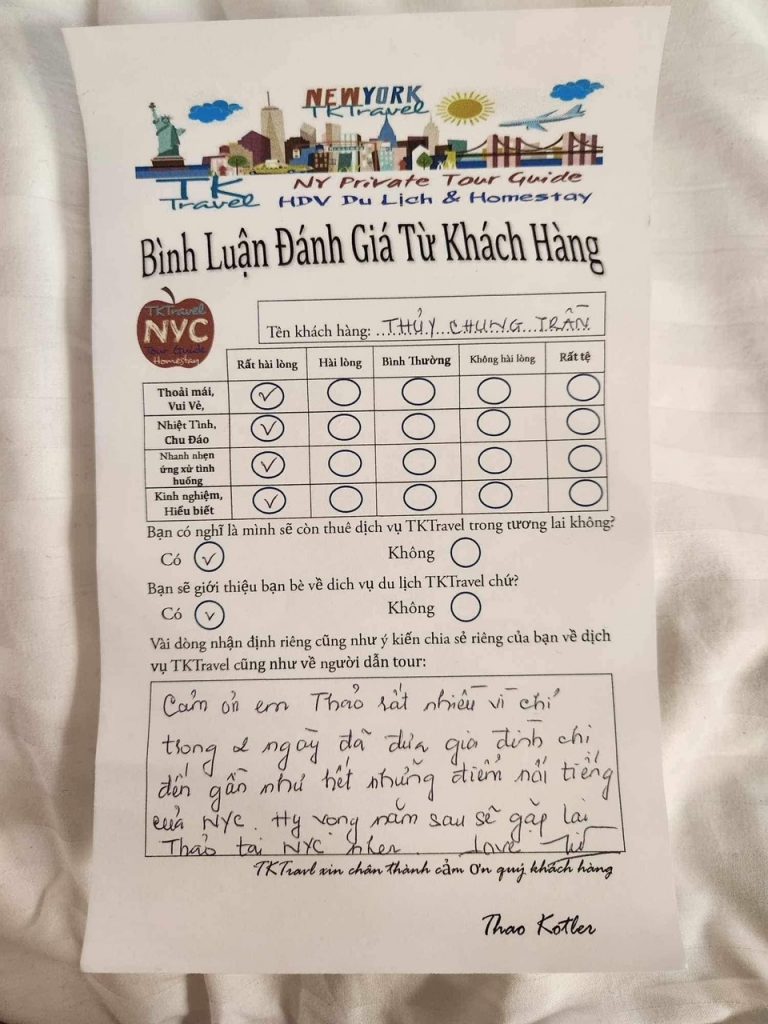 NEWYORK
TKTravel
TK
Travel
NY Private Tour Guide
HDV Du Lịch & Homestay
Bình Luận Đánh Giá Từ Khách Hàng
TKTravel
NYC
Tour Guide
Homestay
Tên khách hàng: THỦY CHUNG TRẦN
Rất hài lòng Hài lòng Bình Thường Không hài lòng Rất tệ
Thoải mái,
Vui Vẻ,
Nhiệt Tình,
Chu Đáo
Nhanh nhẹn
ứng xử tình
huống
Kinh nghiệm,
Hiểu biết
Bạn có nghĩ là mình sẽ còn thuê dịch vụ TKTravel trong tương lai không?
Có Không
Bạn sẽ giới thiệu bạn bè về dich vụ du lịch TKTravel chứ?
Có Không
Vài dòng nhận định riêng cũng như ý kiến chia sẻ riêng của bạn về dịch
vụ TKTravel cũng như về người dẫn tour:
Cảm ơn em Thảo rất nhiều vì chỉ
trong 2 ngày đã đưa gia đình chị
đến gần như hết những điểm nổi tiếng
của NYC. Hy vọng năm sau sẽ gặp lại
Thảo tại NYC nhen. Love
TKTravl xin chân thành cảm ơn quý khách hàng
Thao Kotler